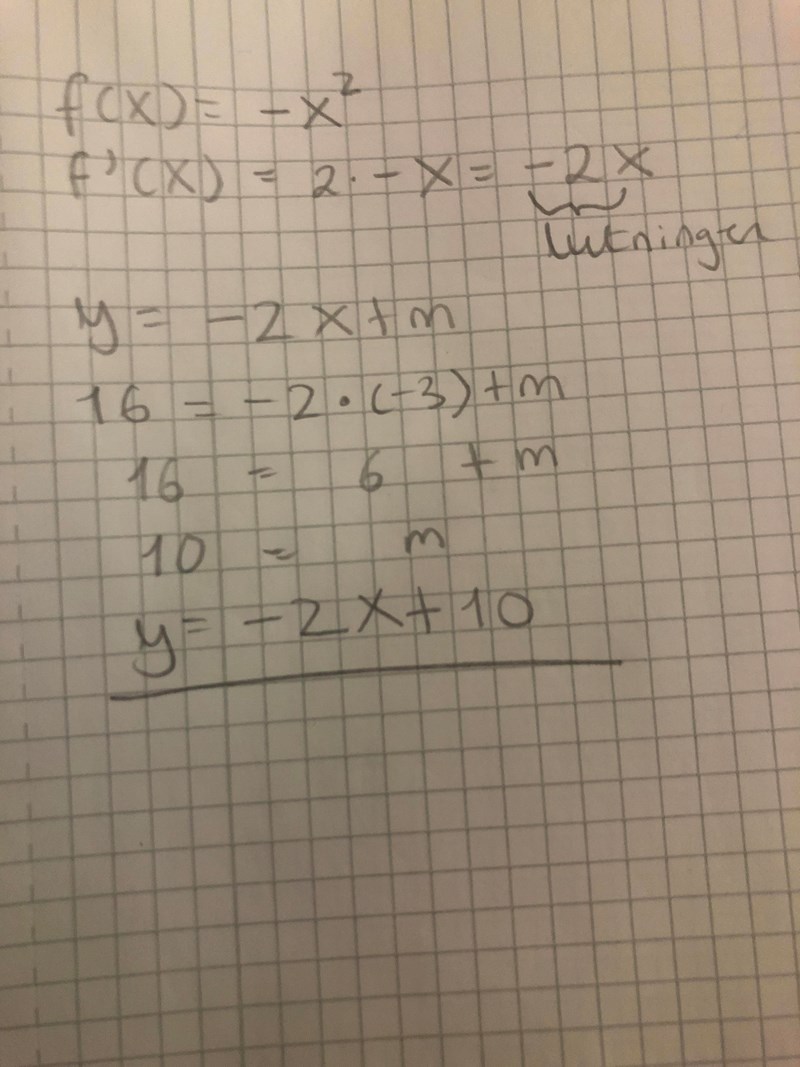 f(x) = -x²
f'(x) = 2·-x = -2x
lutningen
y = -2x+m
16 = -2·(-3)+m
16 = 6 + m
10 = m
y = -2x+10